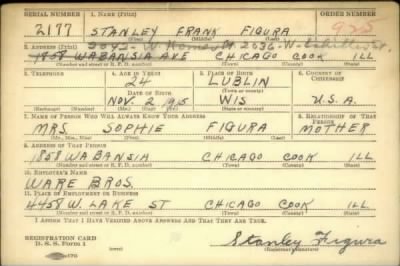 SERIAL NUMBER 1. NAME (Print) ORDER NUMBER
2177 STANLEY FRANK FIGURA 925
(First) (Middle) (Last)
2. ADDRESS (Print) W.
1858 WABANSIA AVE CHICAGO COOK ILL
(Number and street or R. F. D. number) (Town) (County) (State)
3. TELEPHONE 4. AGE IN YEARS 5. PLACE OF BIRTH 6. COUNTRY OF CITIZENSHIP
24 LUBLIN
DATE OF BIRTH (Town or county)
NOV. 2 1915 WIS U.S.A.
(Exchange) (Number) (Mo.) (Day) (Yr.) (State or country)
7. NAME OF PERSON WHO WILL ALWAYS KNOW YOUR ADDRESS 8. RELATIONSHIP OF THAT PERSON
MRS. SOPHIE FIGURA MOTHER
(Mr., Mrs., Miss) (First) (Middle) (Last)
9. ADDRESS OF THAT PERSON
1858 WABANSIA CHICAGO COOK ILL
(Number and street or R. F. D. number) (Town) (County) (State)
10. EMPLOYER'S NAME
WARE BROS.
11. PLACE OF EMPLOYMENT OR BUSINESS
4458 W. LAKE ST CHICAGO COOK ILL
(Number and street or R. F. D. number) (Town) (County) (State)
I AFFIRM THAT I HAVE VERIFIED ABOVE ANSWERS AND THAT THEY ARE TRUE.
REGISTRATION CARD
D. S. S. Form 1 Stanley Figura
(over) (Registrant's signature)